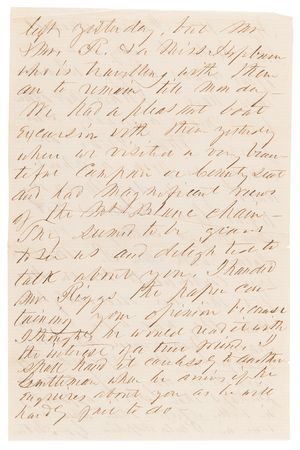 left yesterday, but Mr
& Mrs. R. & a Miss Hepburn
who is travelling with them
are to remain till Monday
We had a pleasant boat
excursion with them yesterday
when we visited a very beau-
tiful campan or County seat
and had magnificent views
of the Mt Blanc chain –
They seemed to be glad
to see us and delighted to
talk about you. I handed
Mr Riggs the paper con-
taining your opinion because
I thought he would read it with
the interest of a true friend. I
shall hand it carelessly to another
Gentleman when he arrives if he
enquires about you as he will
hardly fail to do –